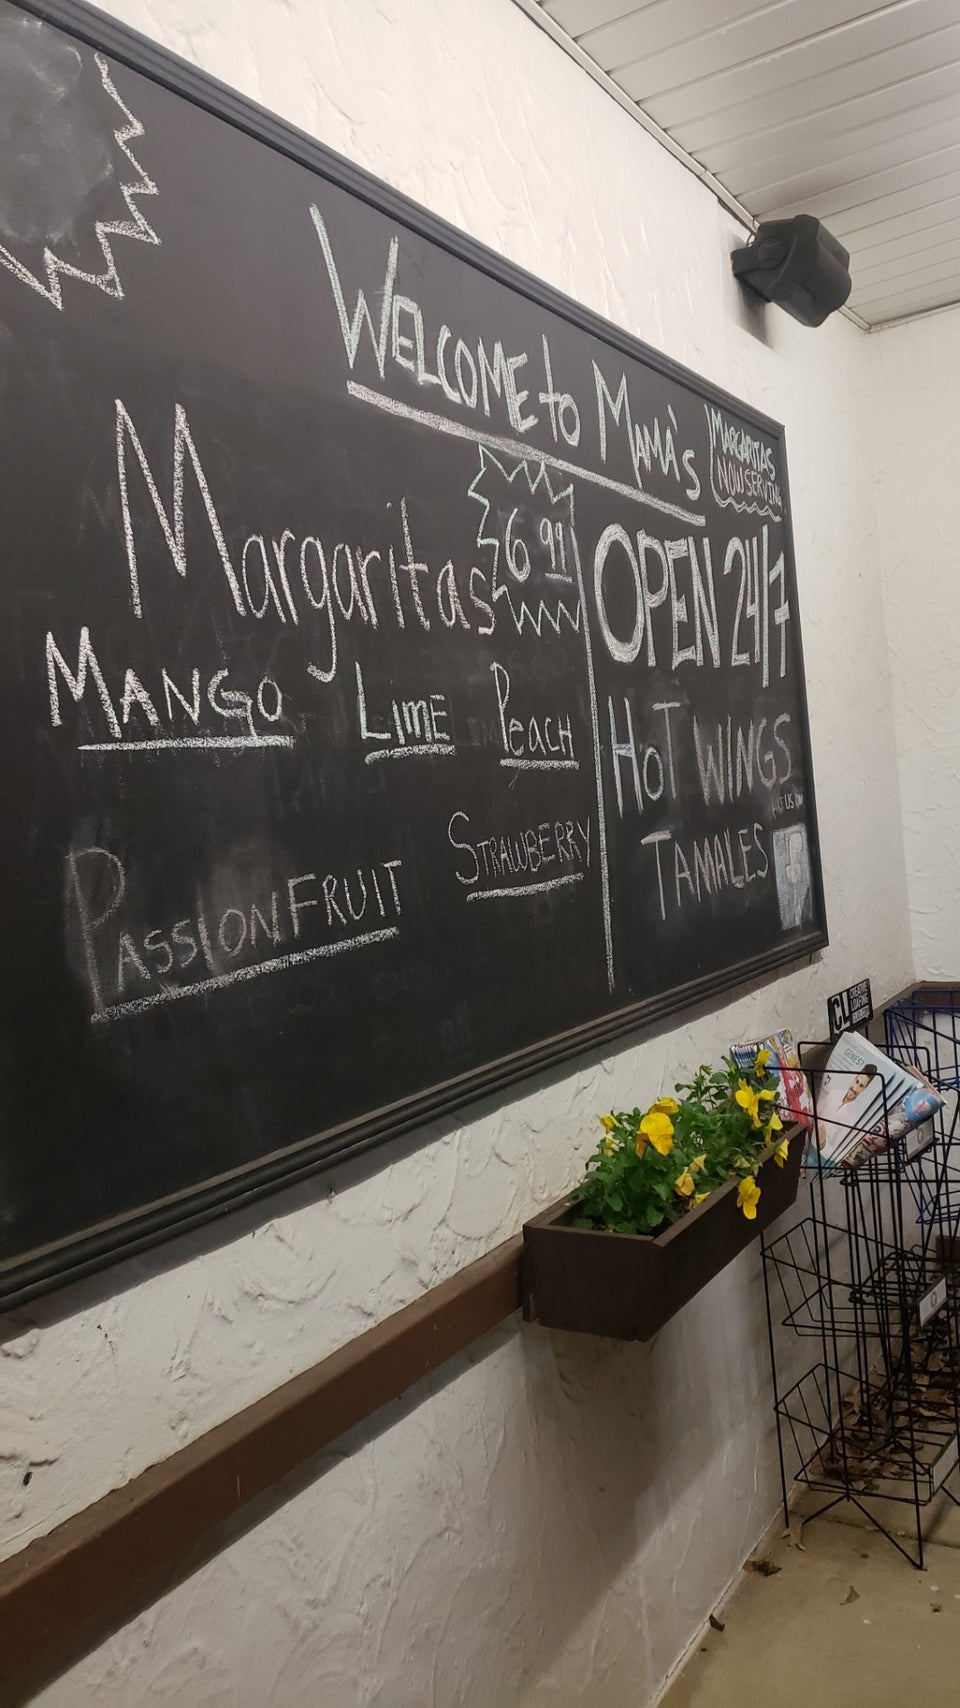 WELCOME to MAMA'S
MARGARITAS
NOW SERVING
Margaritas
6.99
MANGO
LIME
PEACH
PASSIONFRUIT
STRAWBERRY
OPEN 24/7
HOT WINGS
TAMALES
US ON
f
CL
CREATIVE
LOAFING